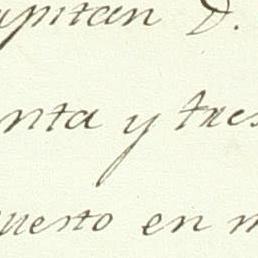 apitan D.
nta y tres
uesto en m